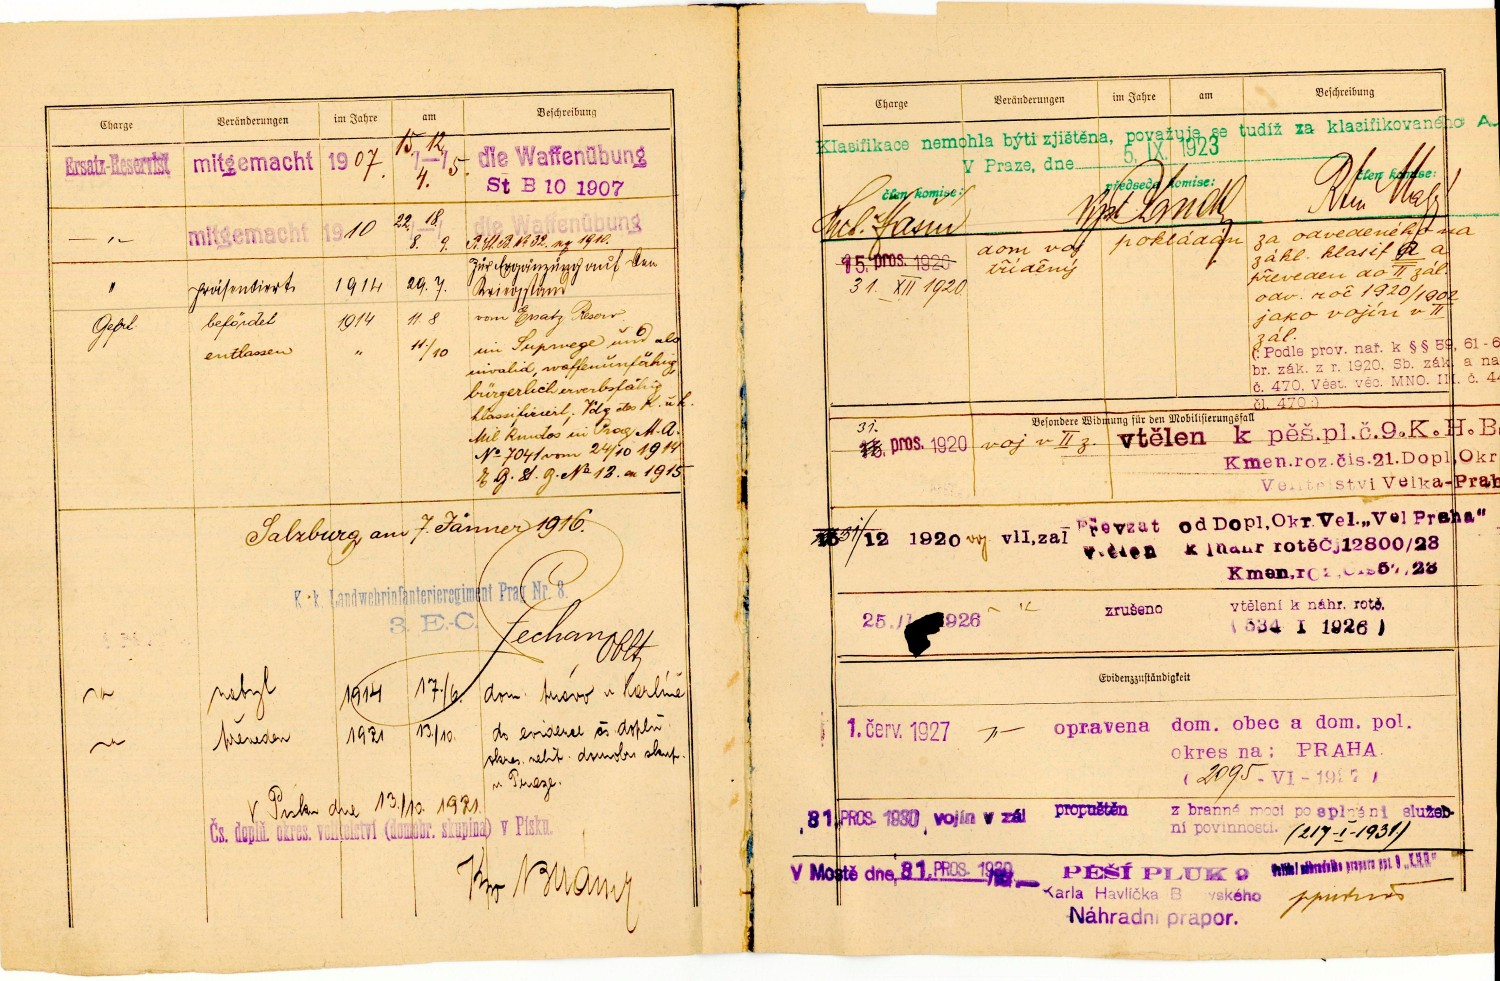 Charge Veränderungen im Jahre am Beschreibung
Ersatz-Reservist mitgemacht 1907. 15. 12. die Waffenübung
4. 5. St B 10 1907
mitgemacht 1910 22. 18. die Waffenübung
8. 9. 1910.
" präsentiert 1914 29.7. Zur Ergänzung auf den
Kriegsstand
Gefrt befördet 1914 11.8 vom Ersatz Reserv.
entlassen " 11/10 im Suprwege und als
invalid, waffenunfähig,
bürgerlich erwerbsfähig
klassificiert. Vdg des k. u. k.
Mil. kmdos in Prag M.A.
No 7041 vom 24/10 1914
E. g. St. g. No 12. ex 1915
Salzburg am 7. Jänner 1916.
K. k. Landwehrinfanterieregiment Prag Nr. 8.
3. E.-C.
Zechan Oblt
nabyl 1914 17./6. dom. právo v Karlíně
převeden 1921 13/10. do evidence čs doplň.
okres. velit. domobr. skup.
v Praze.
V Písku dne 13./10. 1921.
Čs. doplň. okres. velitelství (domobr. skupina) v Písku.
Charge Veränderungen im Jahre am Beschreibung
Klasifikace nemohla býti zjištěna, považuje se tudíž za klasifikovaného A.
V Praze, dne 5. IX. 1923
člen komise: předseda komise: člen komise:
15. pros. 1920 dom voj pokládán za odvedeného na
31. XII 1920. tříděný zákl. klasif. a a
převeden do II zál.
odv. roč 1920/1902
jako vojín v II
zál.
(: Podle prov. nař. k §§ 59, 61-6
br. zák. z r. 1920, Sb. zák. a na
č. 470, Věst. věc. MNO. III. č. 44
čl. 470 :)
Besondere Widmung für den Mobilisierungsfall
31.
15. pros. 1920 voj v II z. vtělen k pěš.pl.č.9.K.H.B.
Kmen.roz.čis.21.Dopl,Okr
Velitelství Velka-Prah
31/12 1920 voj vII,zal Převzat od Dopl,Okr.Vel.„Vel Praha"
vtělen k náhr rotě Čj12800/23
Kmen,roz,čis57/23
25./I. 1926 zrušeno vtělení k náhr. rotě.
(534 I 1926)
Evidenzzuständigkeit
1. červ. 1927 opravena dom. obec a dom. pol.
okres na: PRAHA.
(2095 - VI - 1927)
31. PROS. 1930 vojín v zál propuštěn z branné moci po splnění služeb-
ní povinnosti. (217-I-1931)
V Mostě dne, 31. PROS. 1930 PĚŠÍ PLUK 9
Karla Havlíčka B vského
Náhradní prapor.